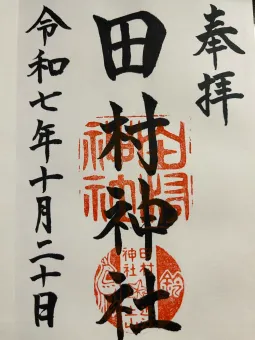 奉拝
田村神社
令和七年十月二十日
田村
神社
鈴